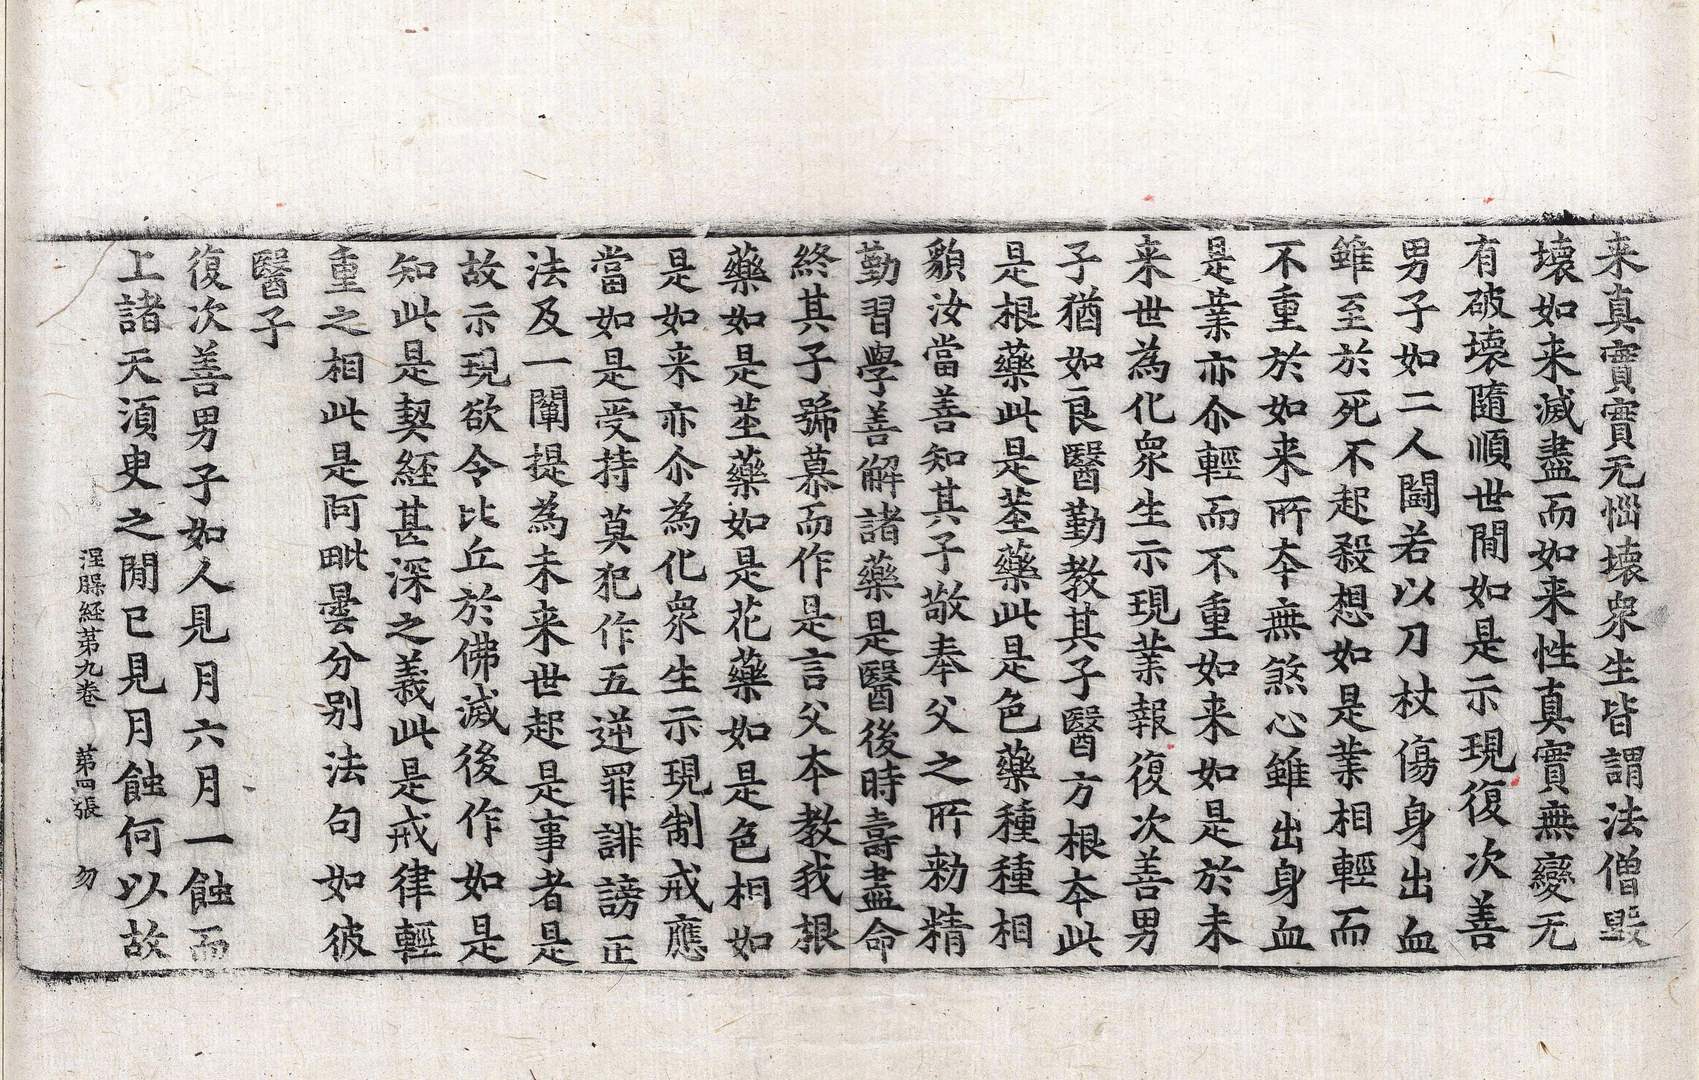 来真實實无惱壞衆生皆謂法僧毀
壞如来滅盡而如来性真實無變无
有破壞隨順世閒如是示現復次善
男子如二人鬪若以刀杖傷身出血
雖至於死不起殺想如是業相輕而
不重於如来所夲無煞心雖出身血
是業亦尒輕而不重如来如是於未
来世為化衆生示現業報復次善男
子猶如良醫勤教其子醫方根夲此
是根藥此是莖藥此是色藥種種相
貌汝當善知其子敬奉父之所勑精
勤習學善解諸藥是醫後時壽盡命
終其子號慕而作是言父夲教我根
藥如是莖藥如是花藥如是色相如
是如来亦尒為化衆生示現制戒應
當如是受持莫犯作五逆罪誹謗正
法及一闡提為未来世起是事者是
故示現欲令比丘於佛滅後作如是
知此是契経甚深之義此是戒律輕
重之相此是阿毗曇分別法句如彼
醫子
復次善男子如人見月六月一蝕而
上諸天湏臾之閒已見月蝕何以故
涅槃経第九卷 第四張 勿